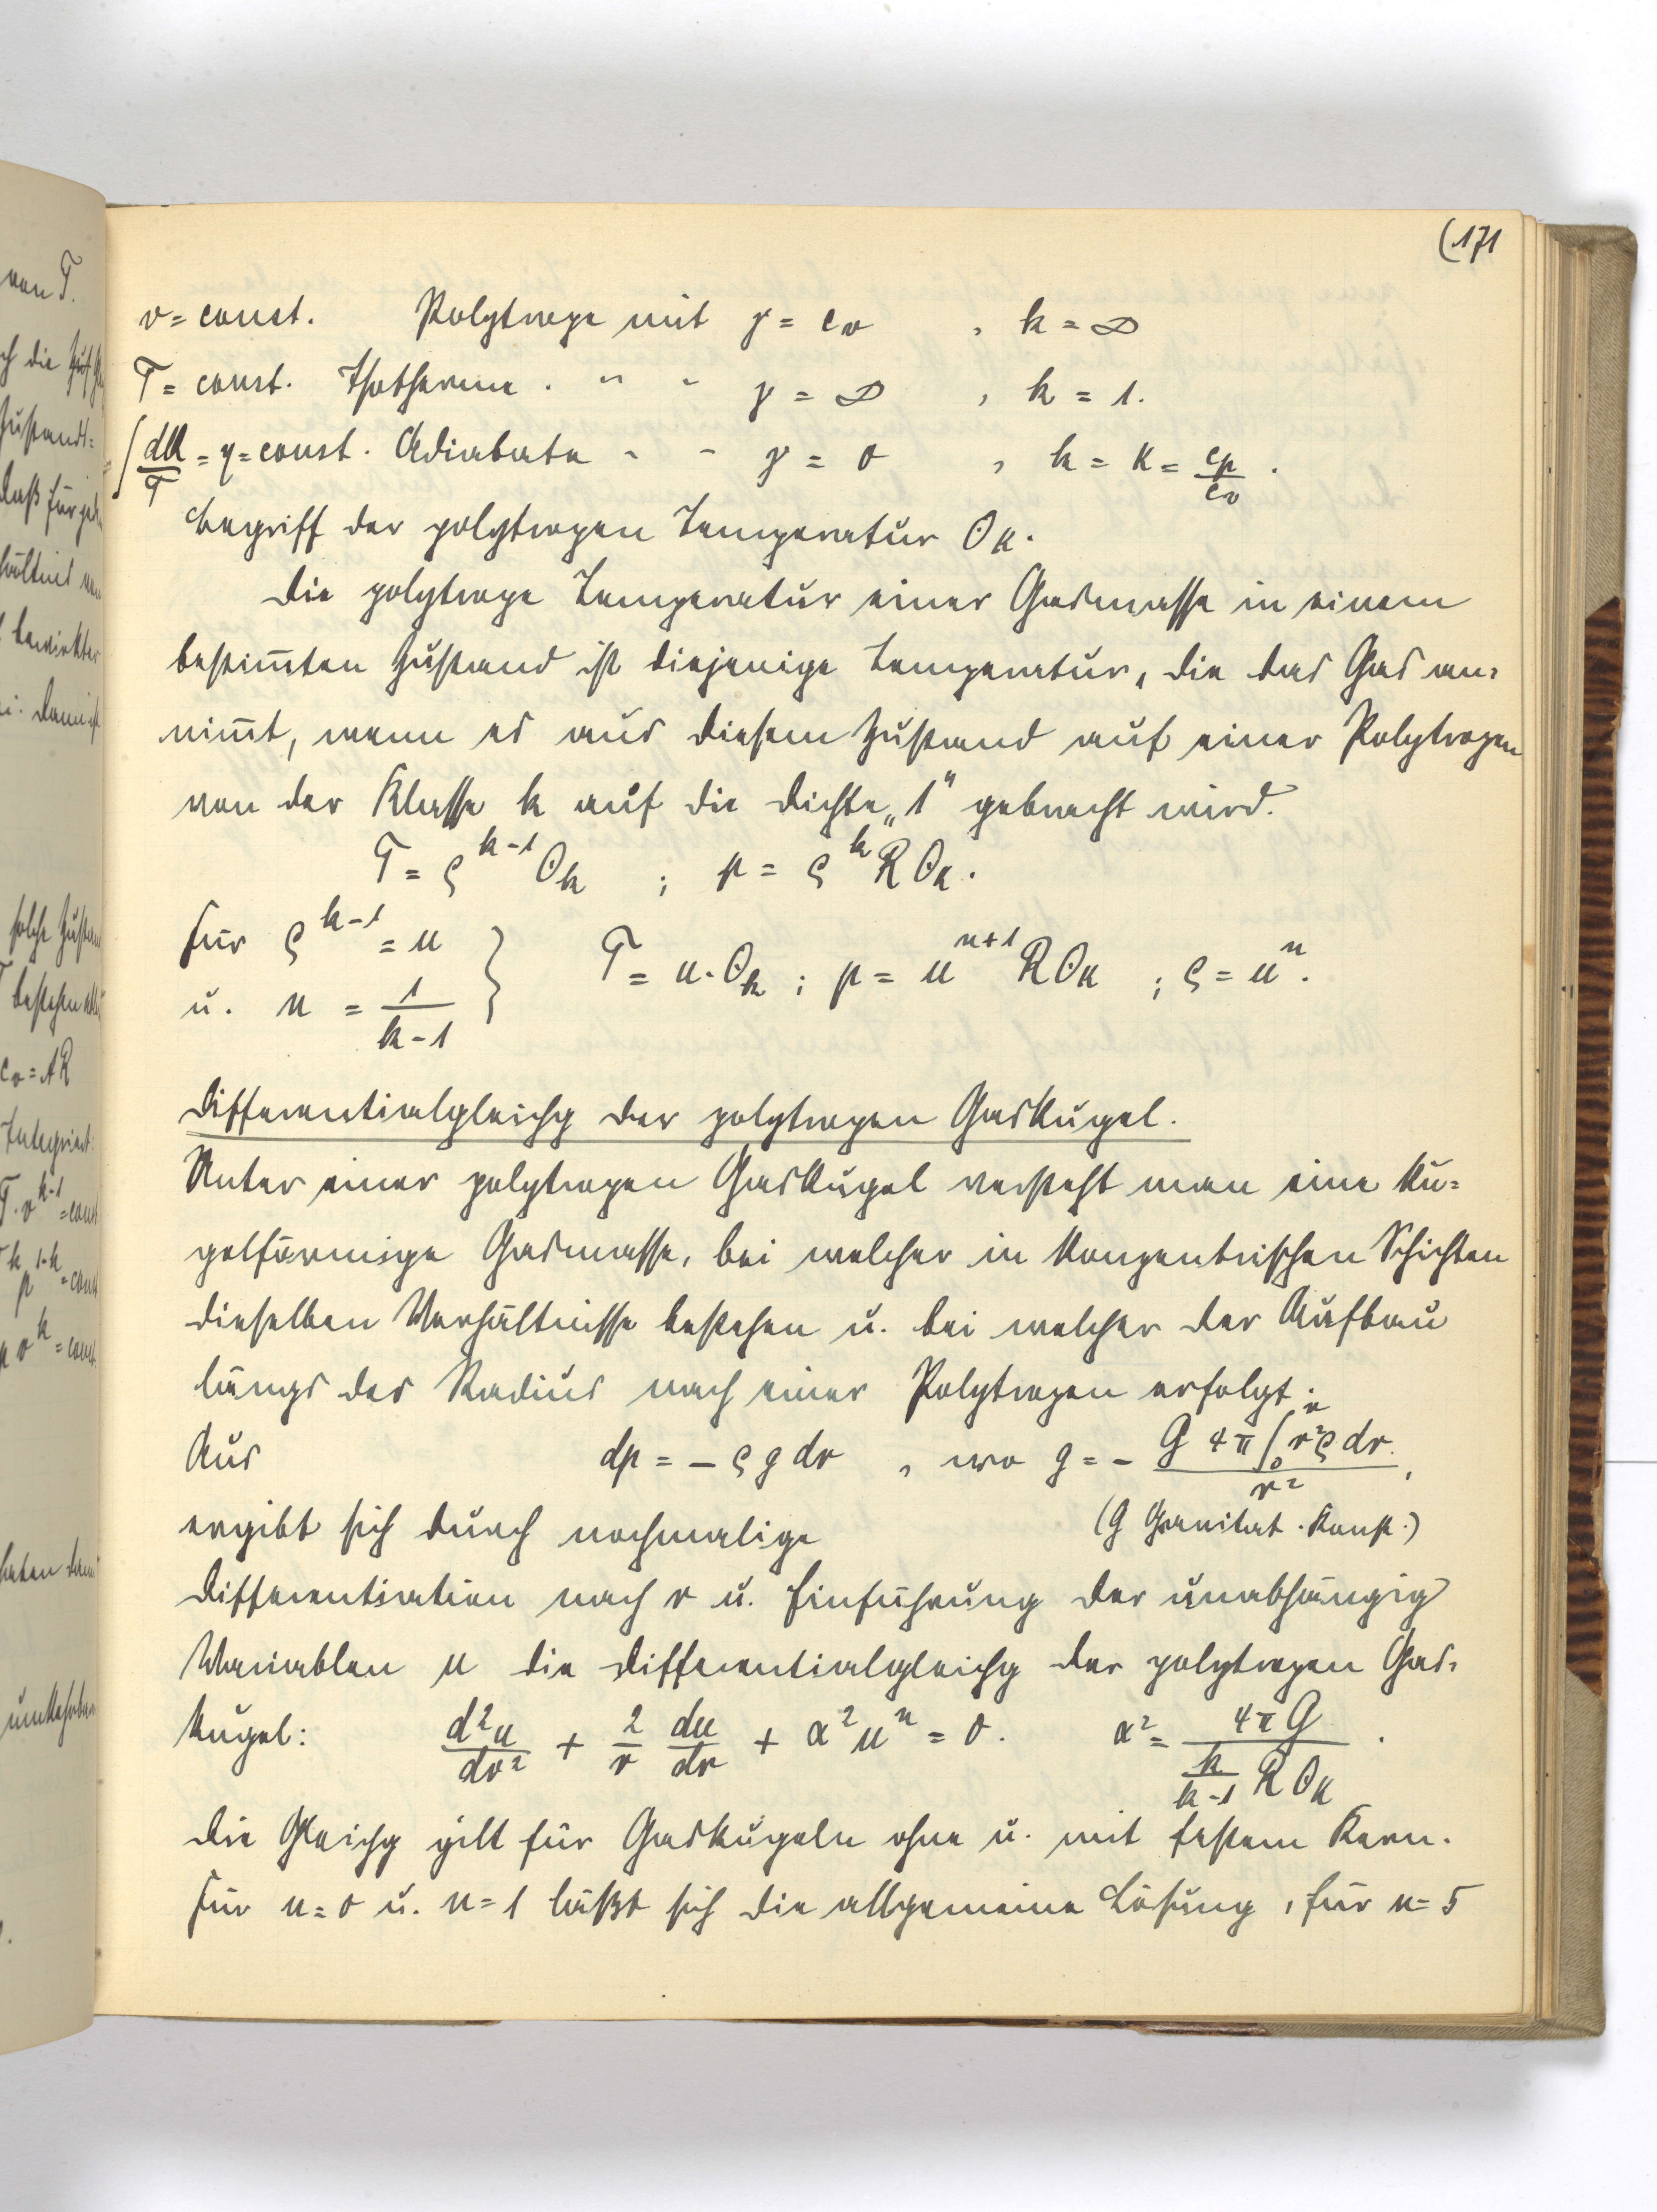 (171
v = const. Polytrope mit γ = c_v , k = ∞
T = const. Isotherme . " " γ = ∞ , k = 1.
∫ dQ/T = η = const. Adiabate " " γ = 0 , k = κ = c_p/c_v .
Begriff der polytropen Temperatur Θ_k.
Die polytrope Temperatur einer Gasmasse in einem
bestim̅ten Zustand ist diejenige Temperatur, die das Gas an-
nim̅t, wenn es aus diesem Zustand auf einer Polytropen
von der Klasse k auf die Dichte „1" gebracht wird.
T = ρ^{k-1} Θ_k ; p = ρ^k R Θ_k.
Für ρ^{k-1} = u } T = u·Θ_k ; p = u^{n+1} R Θ_k ; ρ = u^n.
u. n = 1/(k-1)
Differentialgleichg der polytropen Gaskugel.
Unter einer polytropen Gaskugel versteht man eine ku-
gelförmige Gasmasse, bei welcher in konzentrischen Schichten
dieselben Verhältnisse bestehen u. bei welcher der Aufbau
längs des Radius nach einer Polytropen erfolgt.
Aus dp = - ρ g dr , wo g = - G 4π ∫_0^r r²ρ dr / r² ,
ergibt sich durch nochmalige (G Gravitat. Konst.)
Differentiation nach r u. Einführung der unabhängig
Variablen u die Differentialgleichg der polytropen Gas-
kugel: d²u/dr² + 2/r du/dr + α² u^n = 0. α² = 4πG / (k/(k-1) R Θ_k) .
Die Gleichg gilt für Gaskugeln ohne u. mit festem Kern.
Für n = 0 u. n = 1 läßt sich die allgemeine Lösung, für n = 5